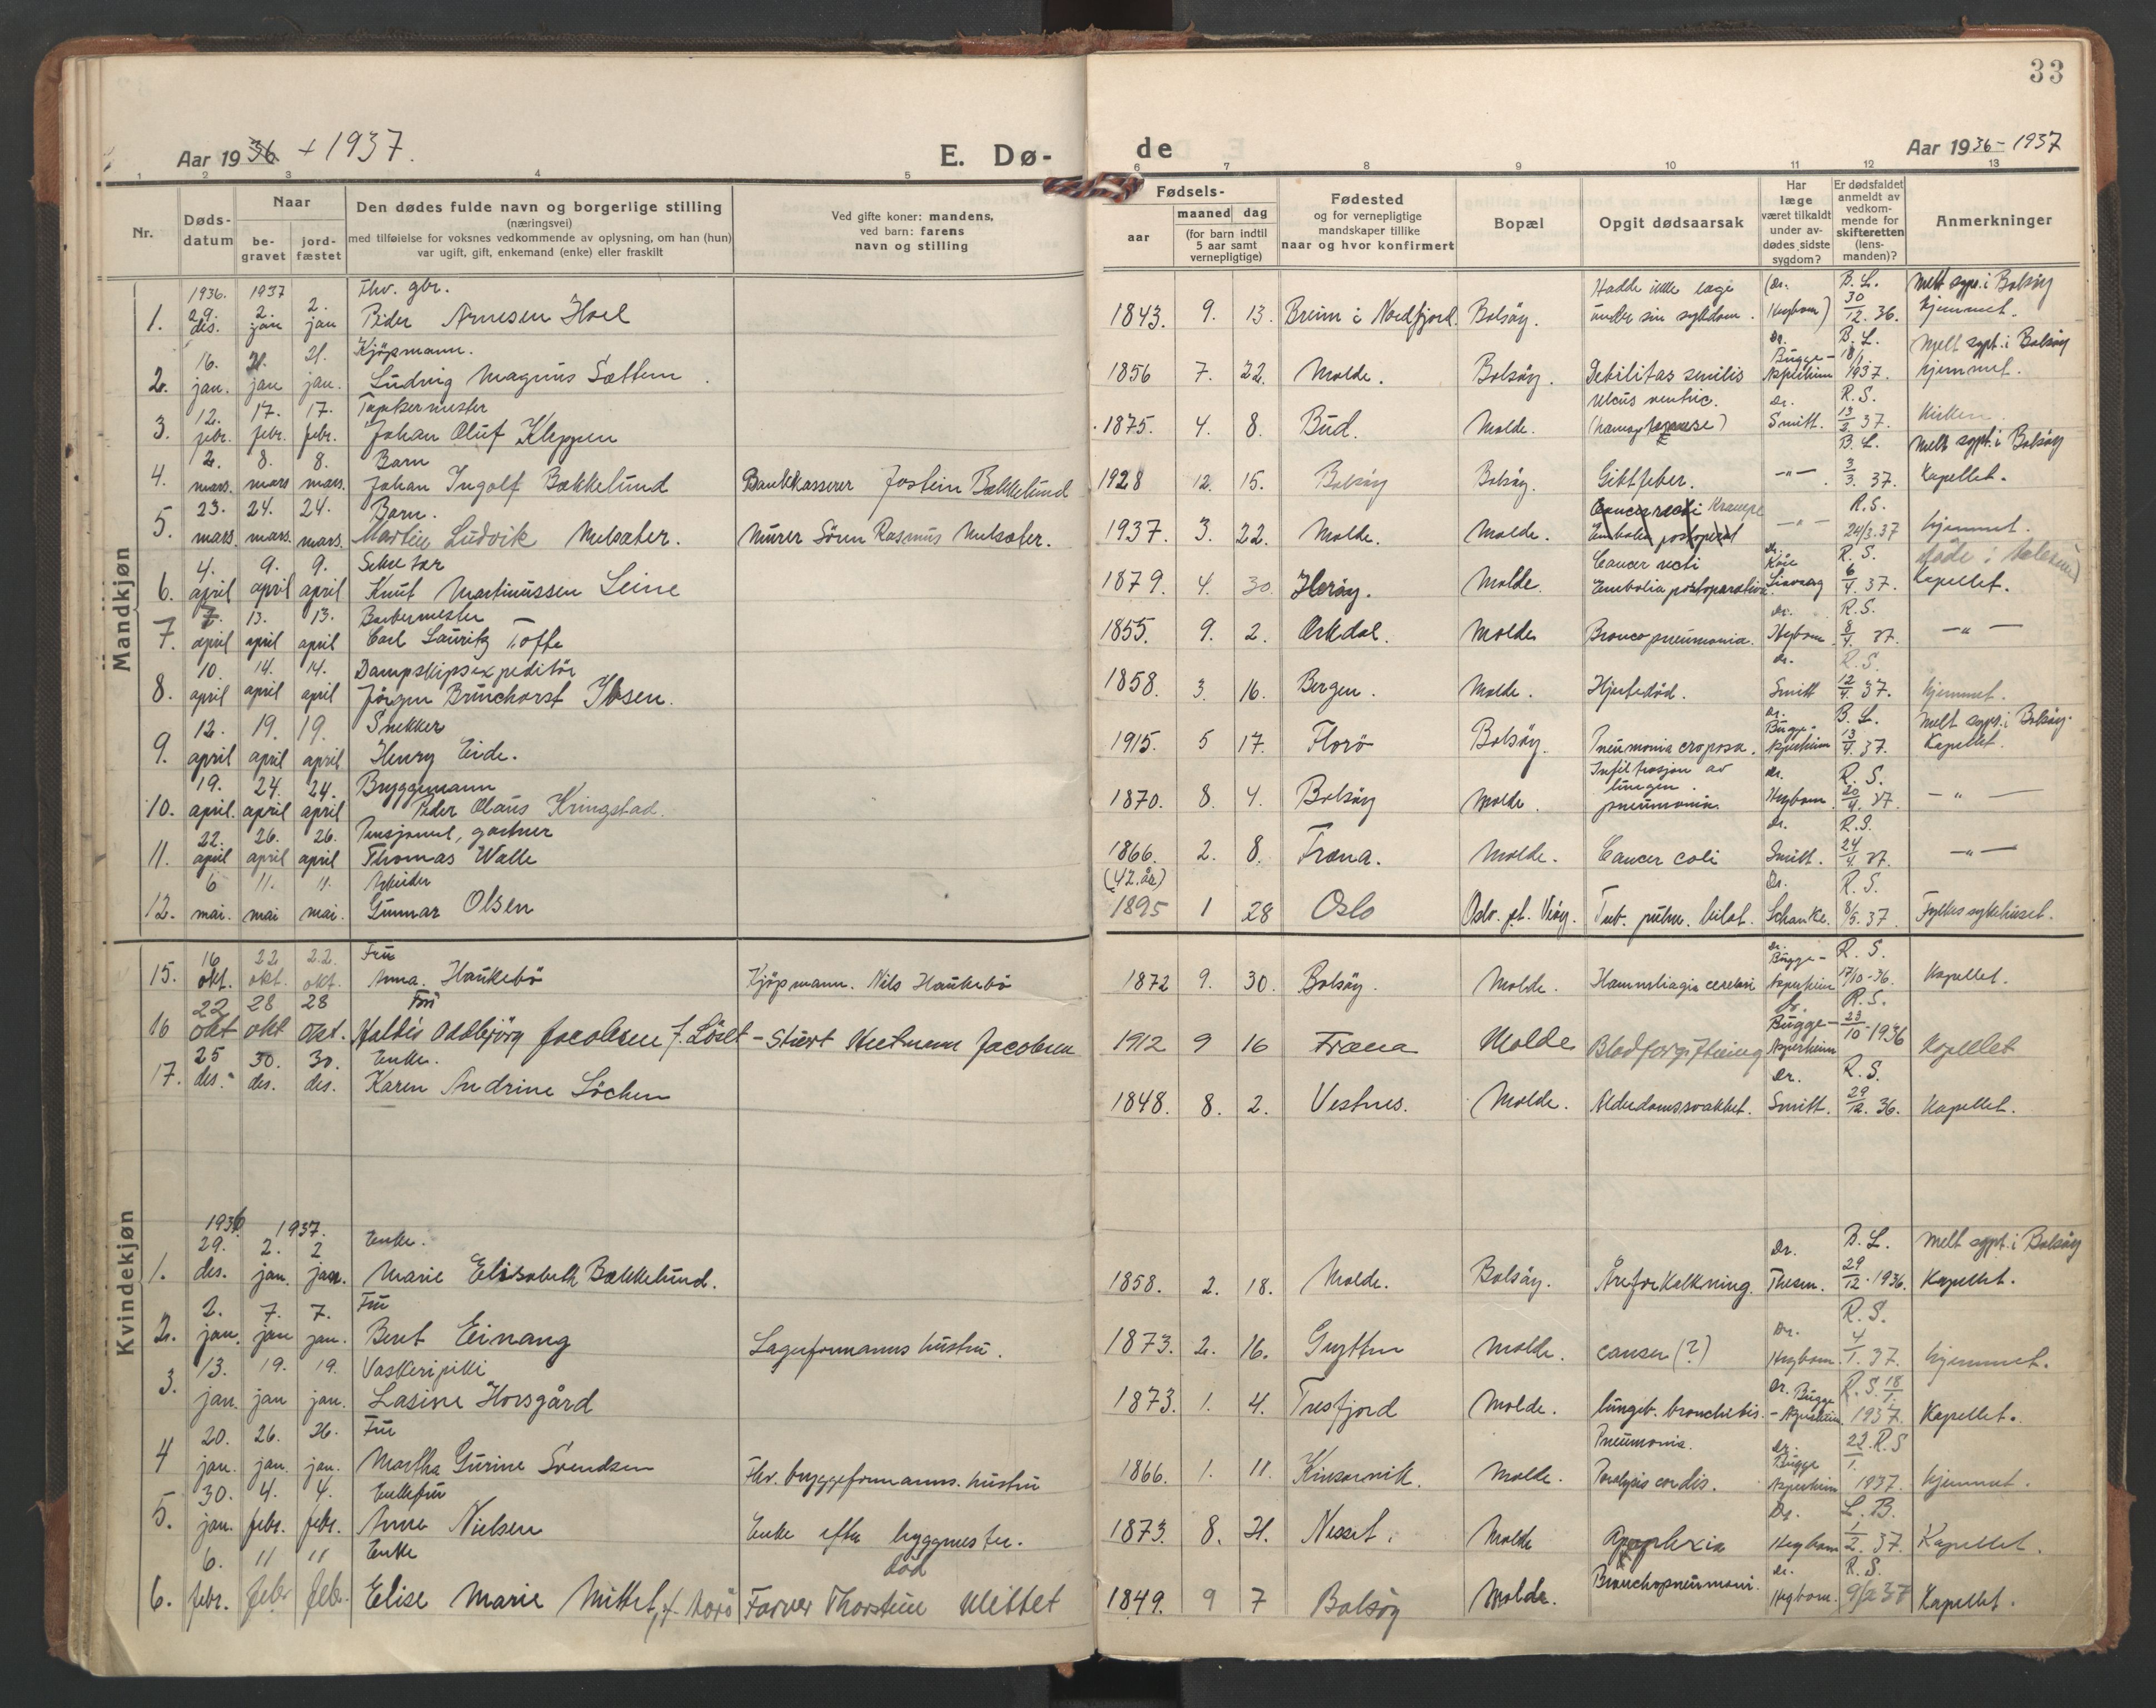 33
Aar 1936 + 1937.
E. Dø-
de
Aar 1936 - 1937
1 2 3 4 5 6 7 8 9 10 11 12 13
Nr.
Døds-
datum
Naar
be-
gravet
jord-
fæstet
Den dødes fulde navn og borgerlige stilling
(næringsvei)
med tilføielse for voksnes vedkommende av oplysning, om han (hun)
var ugift, gift, enkemand (enke) eller fraskilt
Ved gifte koner: mandens,
ved barn: farens
navn og stilling
Fødsels-
aar
maaned dag
(for barn indtil
5 aar samt
vernepligtige)
Fødested
og for vernepligtige
mandskaper tillike
naar og hvor konfirmert
Bopæl
Opgit dødsaarsak
Har
læge
været tilkaldt
under av-
dødes sidste
sygdom?
Er dødsfaldet
anmeldt av
vedkom-
mende for
skifteretten
(lens-
manden)?
Anmerkninger
Mandkjøn
1936. 1937 Fhv. gbr. Hadde ikke læge (Dr. B. L. Melt sypr. i Bolsøy
1. 29. des. 2. jan 2. jan Peder Arnesen Hoel 1843. 9. 13. Breim i Nordfjord. Bolsøy. under sin sykdom. Hegbom) 30/12. 36. hjemmet.
16. 21. 21. Kjöpmann. Dr. B. L. Melt sypt. i Bolsøy
2. jan. jan jan. Ludvig Magnus Sættem. 1856 7. 22. Molde. Bolsøy. Debilitas senilis Bugge-Asperheim 18/1 1937. hjemmet.
12. 17. 17. Tapetsermester Ulcus ventric. Dr. R. S.
3. febr. febr. febr. Johan Oluf Kleppen 1875. 4. 8. Bud. Molde. Smitt. 13/2. 37. kirken.
2. 8. 8. Barn B. L. Melt sypt. i Bolsøy
4. mars. mars mars. Johan Ingolf Bakkelund Bankkasserer Jostein Bakkelund 1928 12. 15. Bolsøy Bolsøy. Giktfeber. —"— 3/3. 37. Kapellet.
23. 24. 24. Barn. Krampe R.S.
5. mars. mars. mars. Martin Ludvik Melsæter. Murer Sören Rasmus Melsæter. 1937. 3. 22. Molde. Molde. —"— 24/3.37 hjemmet.
4. 9. 9. Cancer recti Dr. R. S.
6. april april april Knut Martinussen Leine 1879. 4. 30. Herøy. Molde Embolia postoperativa 6/4. 37. Kapellet.
7. 13. 13. Barbermester Dr. R.S.
7. april april april Carl Lauritz Tofte 1855. 9. 2. Orkdal. Molde Broncopneumonia. Hegbom 8/4. 37. —"—
10. 14. 14. Dampskipsexpeditör Dr. R.S.
8. april april april Jörgen Brunchorst Ibsen. 1858. 3. 16. Bergen. Molde. Hjertedöd. Smitt 12/4. 37. hjemmet.
12. 19. 19. Snekker Dr. B. L. Melt sypt. i Bolsöy.
9. april april april Henry Eide. 1915. 5 17. Florö Bolsöy. Pneumonia croposa. Bugge-Asperheim 13/4. 37. Kapellet.
19. 24. 24. Bryggemann Infiltrasjon av lungen. Dr. R. S.
10. april. april april Peder Olaus Kringstad. 1870. 8. 4. Bolsøy Molde. pneumonia Hegbom 20/4. 37 —"—
22. 26. 26. Pensjonert, gartner Dr. R.S.
11. april april april Thomas Walle 1866. 2. 8. Fræna. Molde. Cancer coli Smitt. 24/4. 37. —"—
6 11. 11. Arbeider (42. år) Dr. R. S.
12. mai. mai mai. Gunnar Olsen 1895 1 28 Oslo Oslo. pt. Veöy. Tub. pulm. bilat. Schanke. 8/5. 37. Fylkessykehuset.
Kvindekjøn
16 22 22. Fru Dr. R. S.
15. okt. okt. okt. Anna. Haukebö Kjöpmann. Nils Haukebö 1872 9. 30. Bolsöy. Molde. Bugge-Asperheim 17/10-36. Kapellet.
22 28 28 Fru Dr. R. S.
16 okt okt okt. Haldis Oddbjörg Jacobsen f. Löset - Stuert Jacobsen 1912 9 16 Fræna Molde Blodforgiftning Bugge-Asperheim 23/10-1936 Kapellet
25 30. 30. Enke. Dr. R. S.
17. des. des. des. Karen Andrine Löchen 1848. 8. 2. Vestnes. Molde. Alderdomssvakhet. Smitt. 29/12. 36. Kapellet.
1936 1937.
29. 2. 2 Enke. Dr. B. L. Melt sypt. i Bolsöy
1. des. jan. jan. Marie Elisabeth Bakkelund. 1858. 2. 18. Molde. Bolsöy. Åreforkalkning. Thesen. 29/12. 1936. Kapellet.
2. 7. 7. Fru Dr. R. S.
2. jan. jan jan. Beret Einang Lagerformanns hustru. 1873. 2. 16. Grytten Molde. canser (?) Hegbom. 4/1. 37. hjemmet.
13. 19. 19. Vaskeripike Dr. Bugge R. S. 18/1
3. jan. jan jan Lasine Horsgård 1873. 1. 4. Tresfjord Molde. lungeb. bronchitis. -Asperheim. 1937. Kapellet.
20. 26. 26. Fru Pneumonia. Dr. 22/1. R.S
4 jan. jan. jan. Martha Gurine Svendsen Fhv. bryggeformanns. hustru 1866. 1. 11. Kinsarvik. Molde. Paralysis cordis. Bugge Asperheim 1937. hjemmet.
30. 4. 4. Enkefru Dr. L. B.
5. jan. febr. febr. Anne Nielsen Enke efter byggmester. 1873. 8. 21. Nesset. Molde Apoplexia Hegbom 1/2. 37. Kapellet.
6. 11 11 Enke död Dr. R. S.
6. febr. febr febr. Elise Marie Mittet, Farver Thorstein Mittet 1849. 9 7 Bolsöy Molde. Bronchopneumoni. Hegbom. 9/2 37 Kapellet.